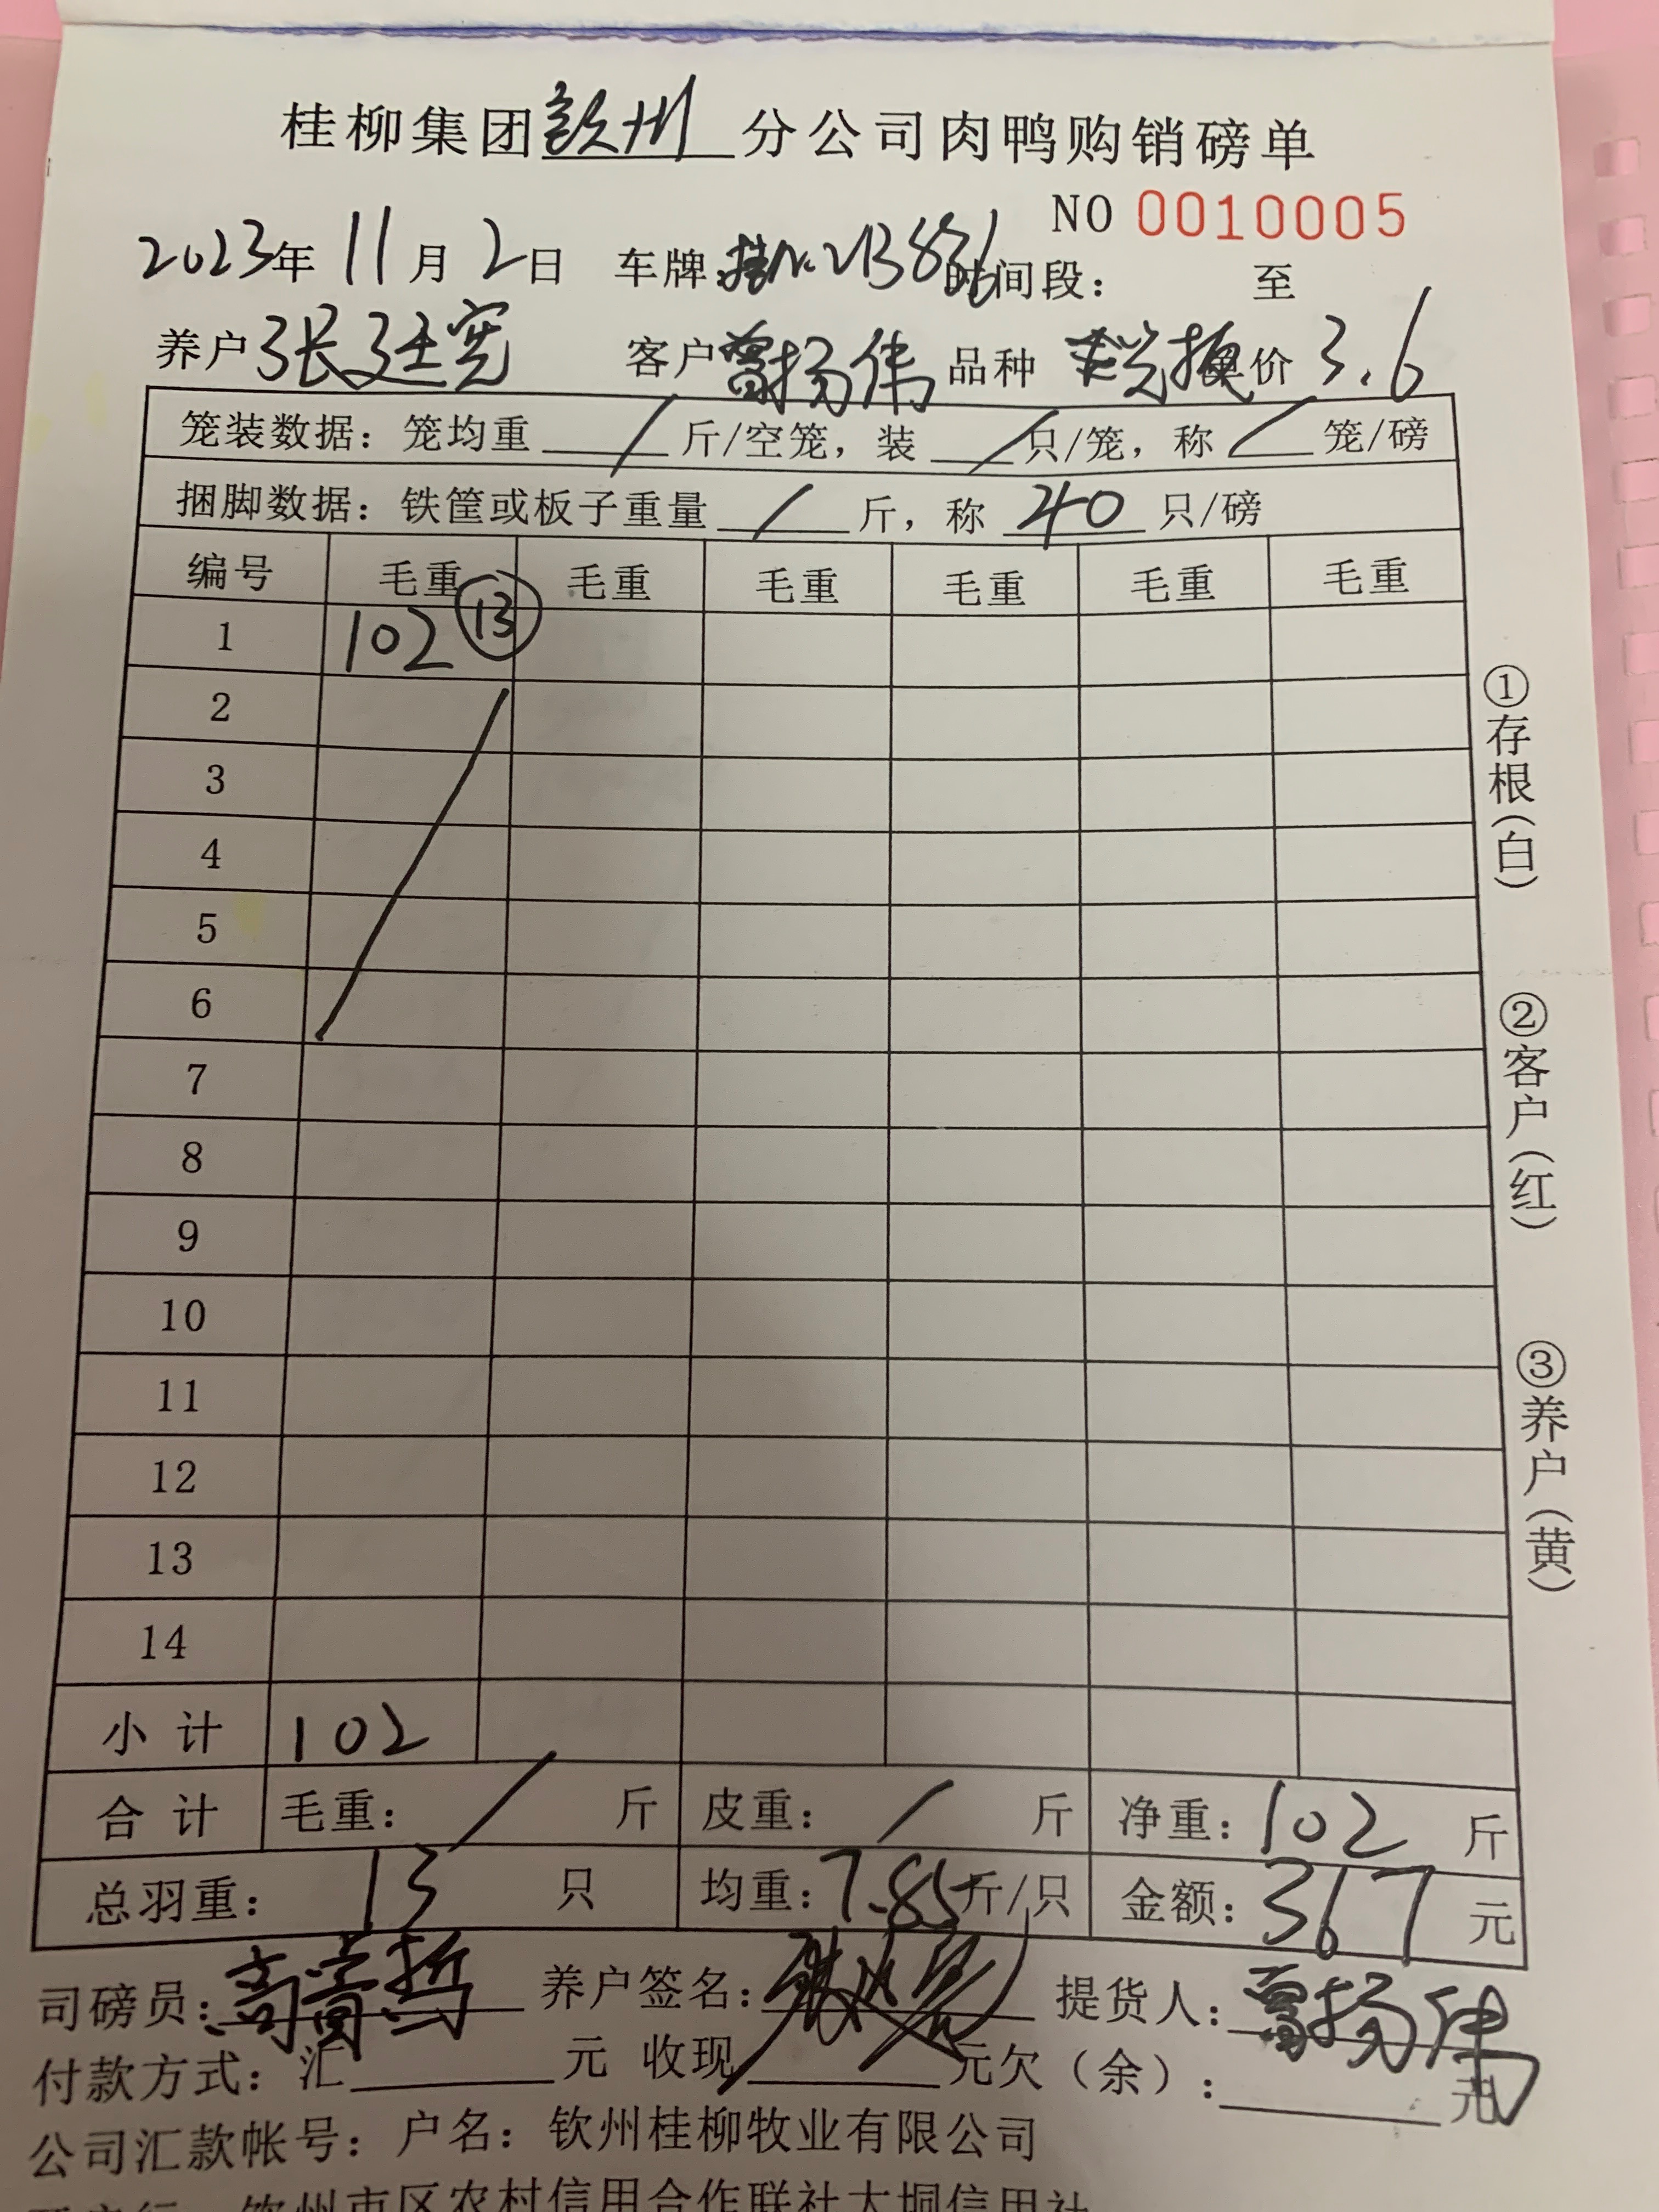 桂柳集团钦州分公司肉鸭购销磅单
NO 0010005
2023年 11月 2日 车牌: 时间段: 至
养户 张廷宪 客户 曾扬伟 品种 单价 3.6
笼装数据: 笼均重 / 斤/空笼, 装 / 只/笼, 称 / 笼/磅
捆脚数据: 铁筐或板子重量 / 斤, 称 40 只/磅
编号 毛重 毛重 毛重 毛重 毛重 毛重
1 102 ⑬
2
3
4
5
6
7
8
9
10
11
12
13
14
小计 102
合计 毛重: / 斤 皮重: / 斤 净重: 102 斤
总羽重: 13 只 均重: 7.85 斤/只 金额: 367 元
司磅员: 养户签名: 提货人: 曾扬伟
付款方式: 汇 元 收现 元欠(余): 元
公司汇款帐号: 户名: 钦州桂柳牧业有限公司
钦州市区农村信用合作联社大垌信用社
①存根(白)
②客户(红)
③养户(黄)